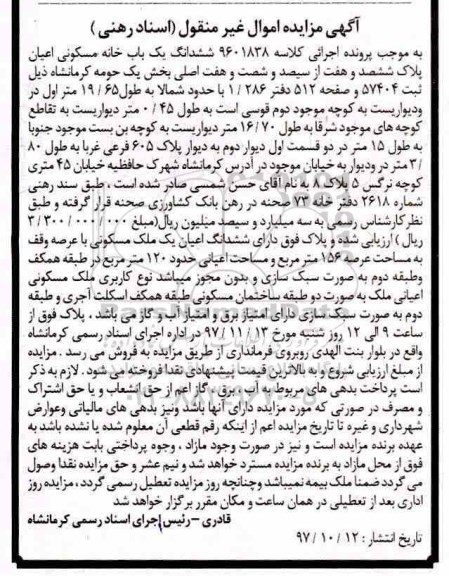 آگهی مزایده اموال غیر منقول (اسناد رهنی)
به موجب پرونده اجرائی کلاسه ۹۶۰۱۸۳۸ ششدانگ یک باب خانه مسکونی اعیان
پلاک ششصد و هفت از سیصد و شصت و هفت اصلی بخش یک حومه کرمانشاه ذیل
ثبت ۵۷۴۰۴ و صفحه ۵۱۲ دفتر ۲۸۶/۱ با حدود شمالا به طول ۱۹/۶۵ متر اول در
ودیواریست به کوچه موجود دوم قوسی است به طول ۰/۴۵ متر دیواریست به تقاطع
کوچه های موجود شرقا به طول ۱۶/۷۰ متر دیواریست به کوچه بن بست موجود جنوبا
به طول ۱۵ متر در دو قسمت اول دیوار دوم به دیوار پلاک ۶۰۵ فرعی غربا به طول ۸۰
/۳ متر در ودیوار به خیابان موجود در آدرس کرمانشاه شهرک حافظیه خیابان ۴۵ متری
کوچه نرگس ۵ پلاک ۸ به نام آقای حسن شمسی صادر شده است ، طبق سند رهنی
شماره ۲۶۱۸ دفتر خانه ۷۳ صحنه در رهن بانک کشاورزی صحنه قرار گرفته و طبق
نظر کارشناس رسمی به سه میلیارد و سیصد میلیون ریال(مبلغ ۳/۳۰۰/۰۰۰/۰۰۰
ریال ) ارزیابی شده و پلاک فوق دارای ششدانگ اعیان یک ملک مسکونی با عرصه وقف
به مساحت عرصه ۱۵۶ متر مربع و مساحت اعیانی حدود ۱۲۰ متر مربع در طبقه همکف
وطبقه دوم به صورت سبک سازی و بدون مجوز میباشد نوع کاربری ملک مسکونی
اعیانی ملک به صورت دو طبقه ساختمان مسکونی طبقه همکف اسکلت آجری و طبقه
دوم به صورت سبک سازی دارای امتیاز برق و امتیاز آب و گاز می باشد ، پلاک فوق از
ساعت ۹ الی ۱۲ روز شنبه مورخ ۹۷/۱۱/۱۳ در اداره اجرای اسناد رسمی کرمانشاه
واقع در بلوار بنت الهدی روبروی فرمانداری از طریق مزایده به فروش می رسد . مزایده
از مبلغ ارزیابی شروع و به بالاترین قیمت پیشنهادی نقدا فروخته می شود . لازم به ذکر
است پرداخت بدهی های مربوط به آب ، برق ، گاز اعم از حق انشعاب و یا حق اشتراک
و مصرف در صورتی که مورد مزایده دارای آنها باشد ونیز بدهی های مالیاتی وعوارض
شهرداری و غیره تا تاریخ مزایده اعم از اینکه رقم قطعی آن معلوم شده یا نشده باشد به
عهده برنده مزایده است و نیز در صورت وجود مازاد ، وجوه پرداختی بابت هزینه های
فوق از محل مازاد به برنده مزایده مسترد خواهد شد و نیم عشر و حق مزایده نقدا وصول
می گردد ضمنا ملک بیمه نمیباشد وچنانچه روز مزایده تعطیل رسمی گردد ، مزایده روز
اداری بعد از تعطیلی در همان ساعت و مکان مقرر برگزار خواهد شد
قادری – رئیس اجرای اسناد رسمی کرمانشاه
تاریخ انتشار : ۹۷/۱۰/۱۲